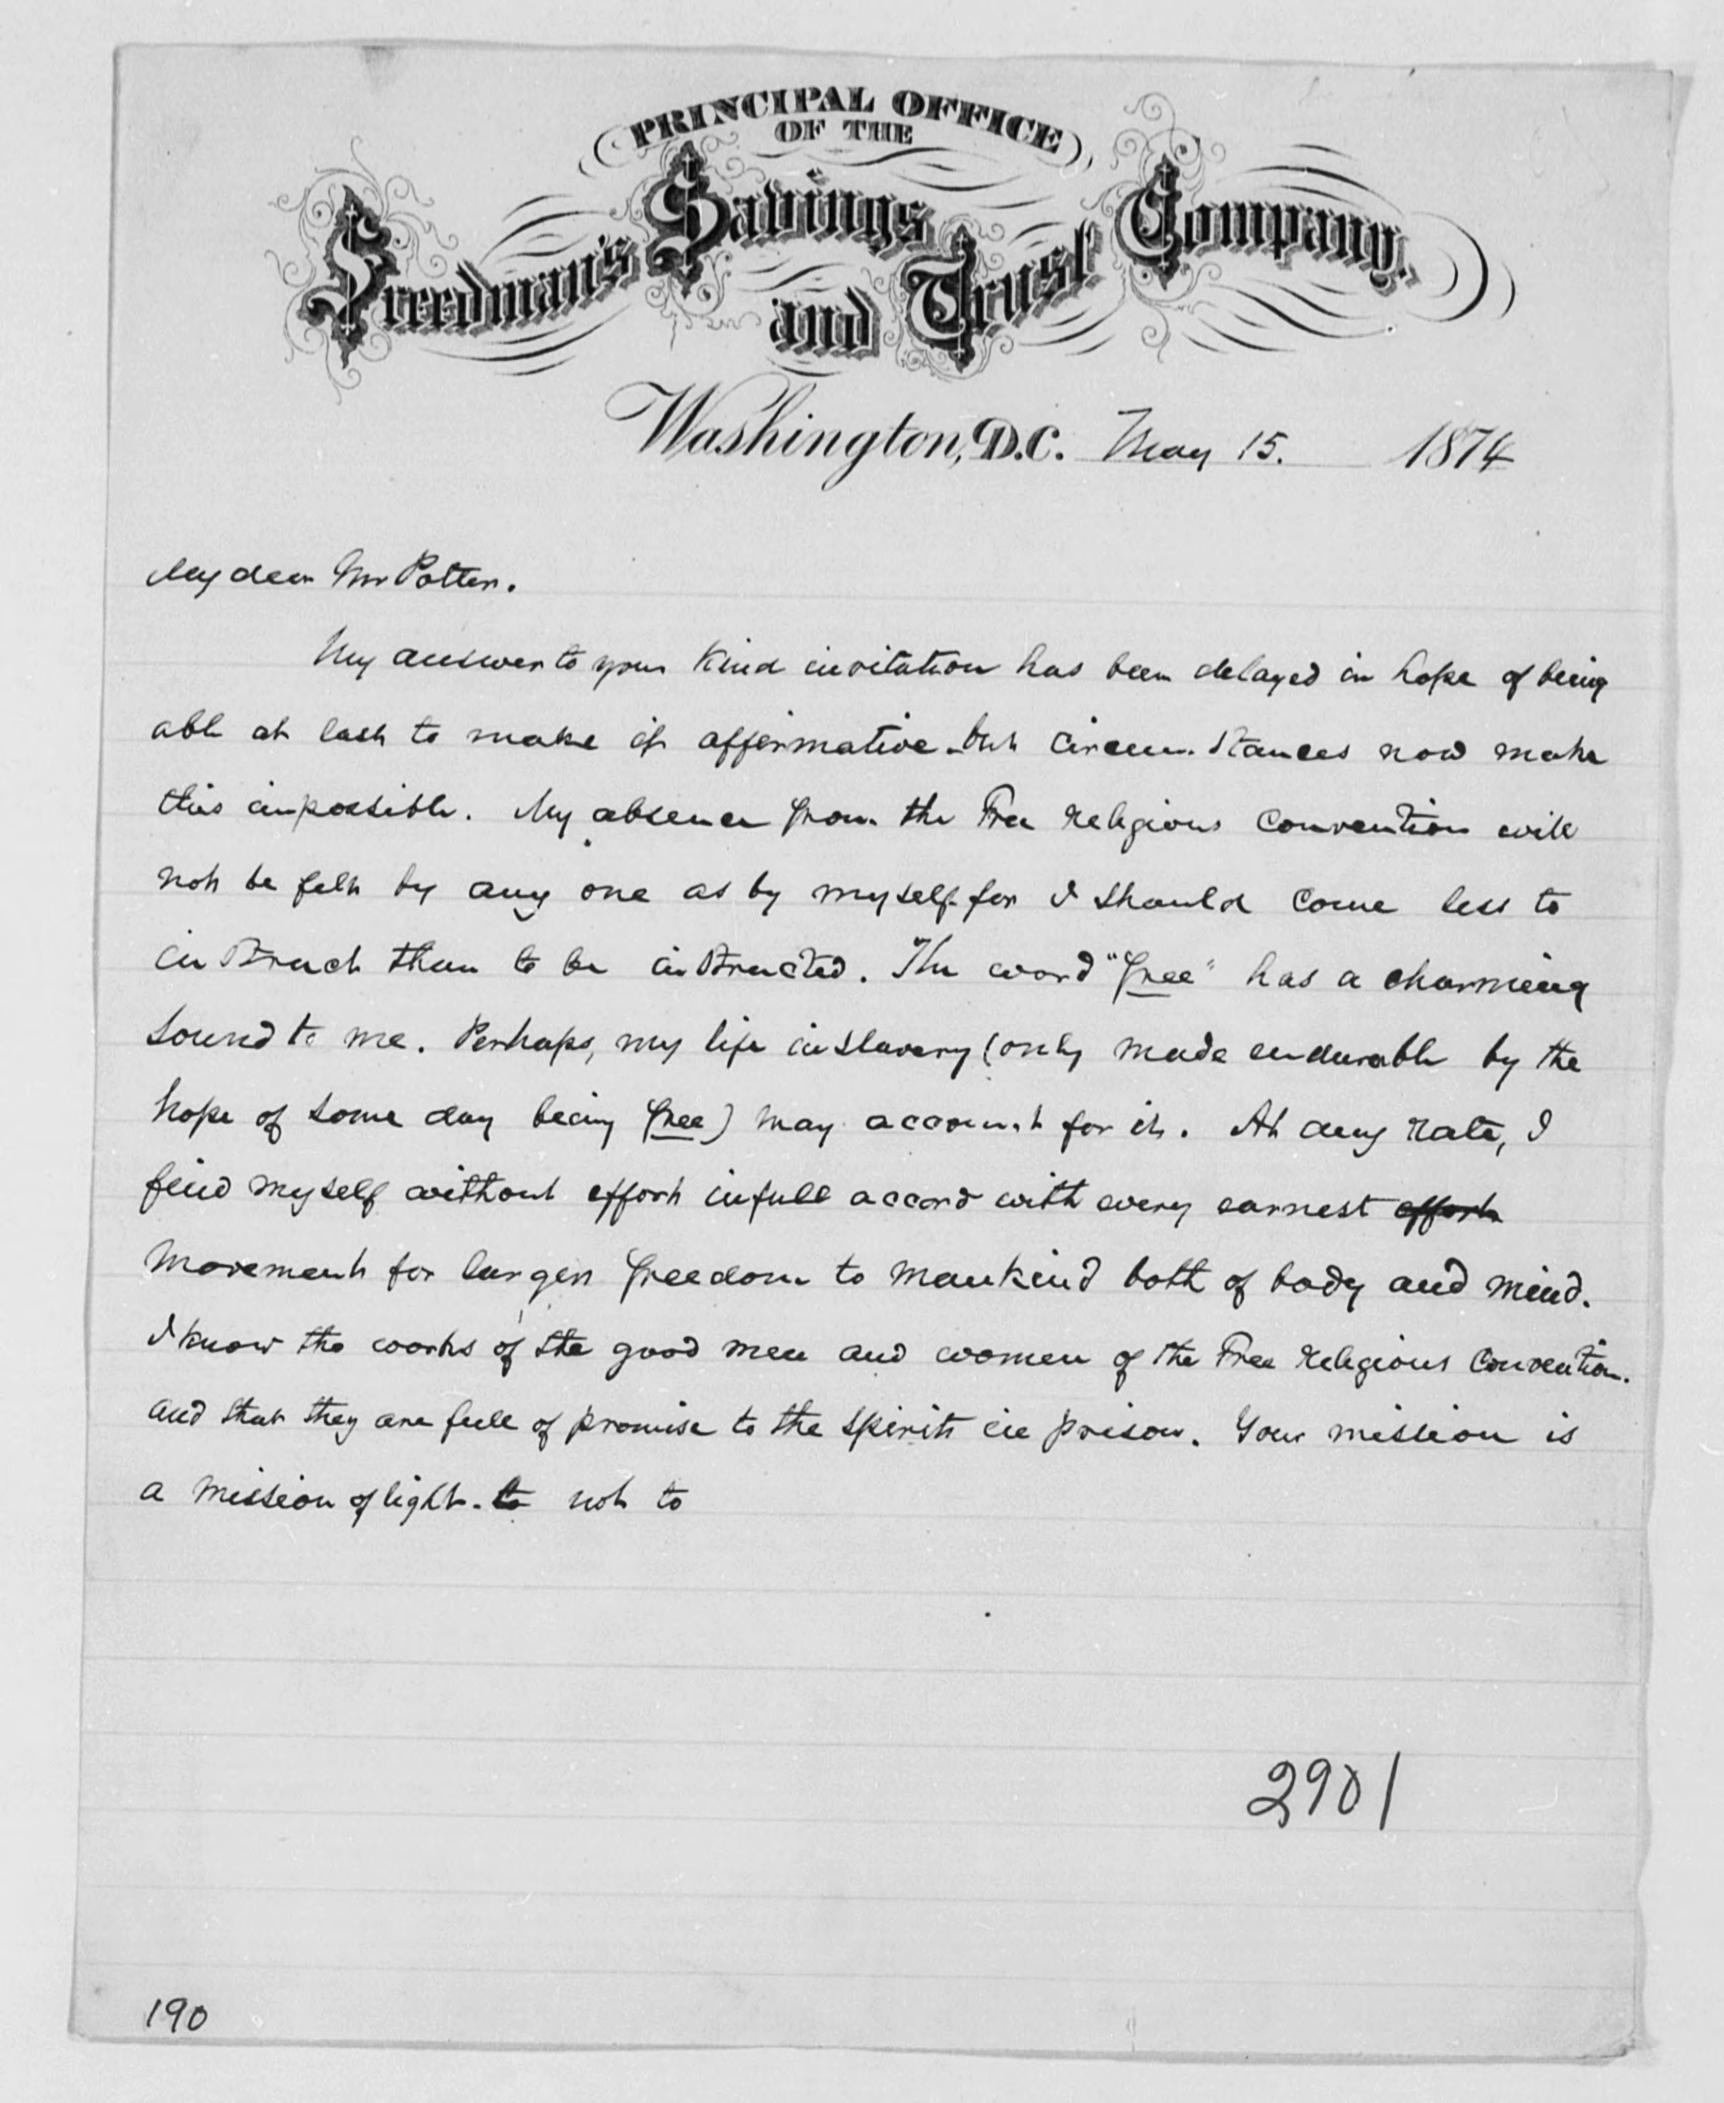 PRINCIPAL OFFICE
OF THE
Freedman's Savings and Trust Company.
Washington, D.C. May 15. 1874
My dear Mr Potter.
My answer to your kind invitation has been delayed in hope of being
able at last to make it affirmative - but circumstances now make
this impossible. My absence from the Free religious Convention will
not be felt by any one as by myself - for I should come less to
instruct than to be instructed. The word "free" has a charming
sound to me. Perhaps, my life in slavery (only made endurable by the
hope of some day being free) may account for it. At any rate, I
find myself without effort in full accord with every earnest effort
movement for larger freedom to mankind both of body and mind.
I know the works of the good men and women of the Free religious Convention.
and that they are full of promise to the spirits in prison. Your mission is
a mission of light - to not to
2901
190